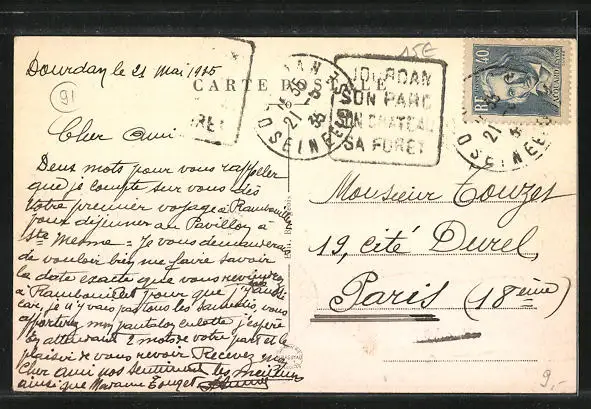 Dourdan le 21 Mai 1935
15€
91
CARTE POSTALE
DOURDAN
SON PARC
SON CHATEAU
SA FORET
SEINE
40
RF
Cher Ami
Deux mots pour vous rappeler
que je compte sur vous dès
votre premier voyage à Rambouillet
pour déjeuner au Pavillon à
Ste Mesme = Je vous demanderai
de vouloir bien me faire savoir
la date exacte que vous reviendrez
à Rambouillet pour que j'y
car je n'y vais pas tous les samedis, vous
apporterez mon pantalon culotte j'espère
en attendant 2 mots de votre part et le
plaisir de vous revoir Recevez mon
Cher ami nos sentiments les meilleurs
ainsi que Madame Touzet
Monsieur Touzet
19, cité Durel
Paris (18eme)
9,-